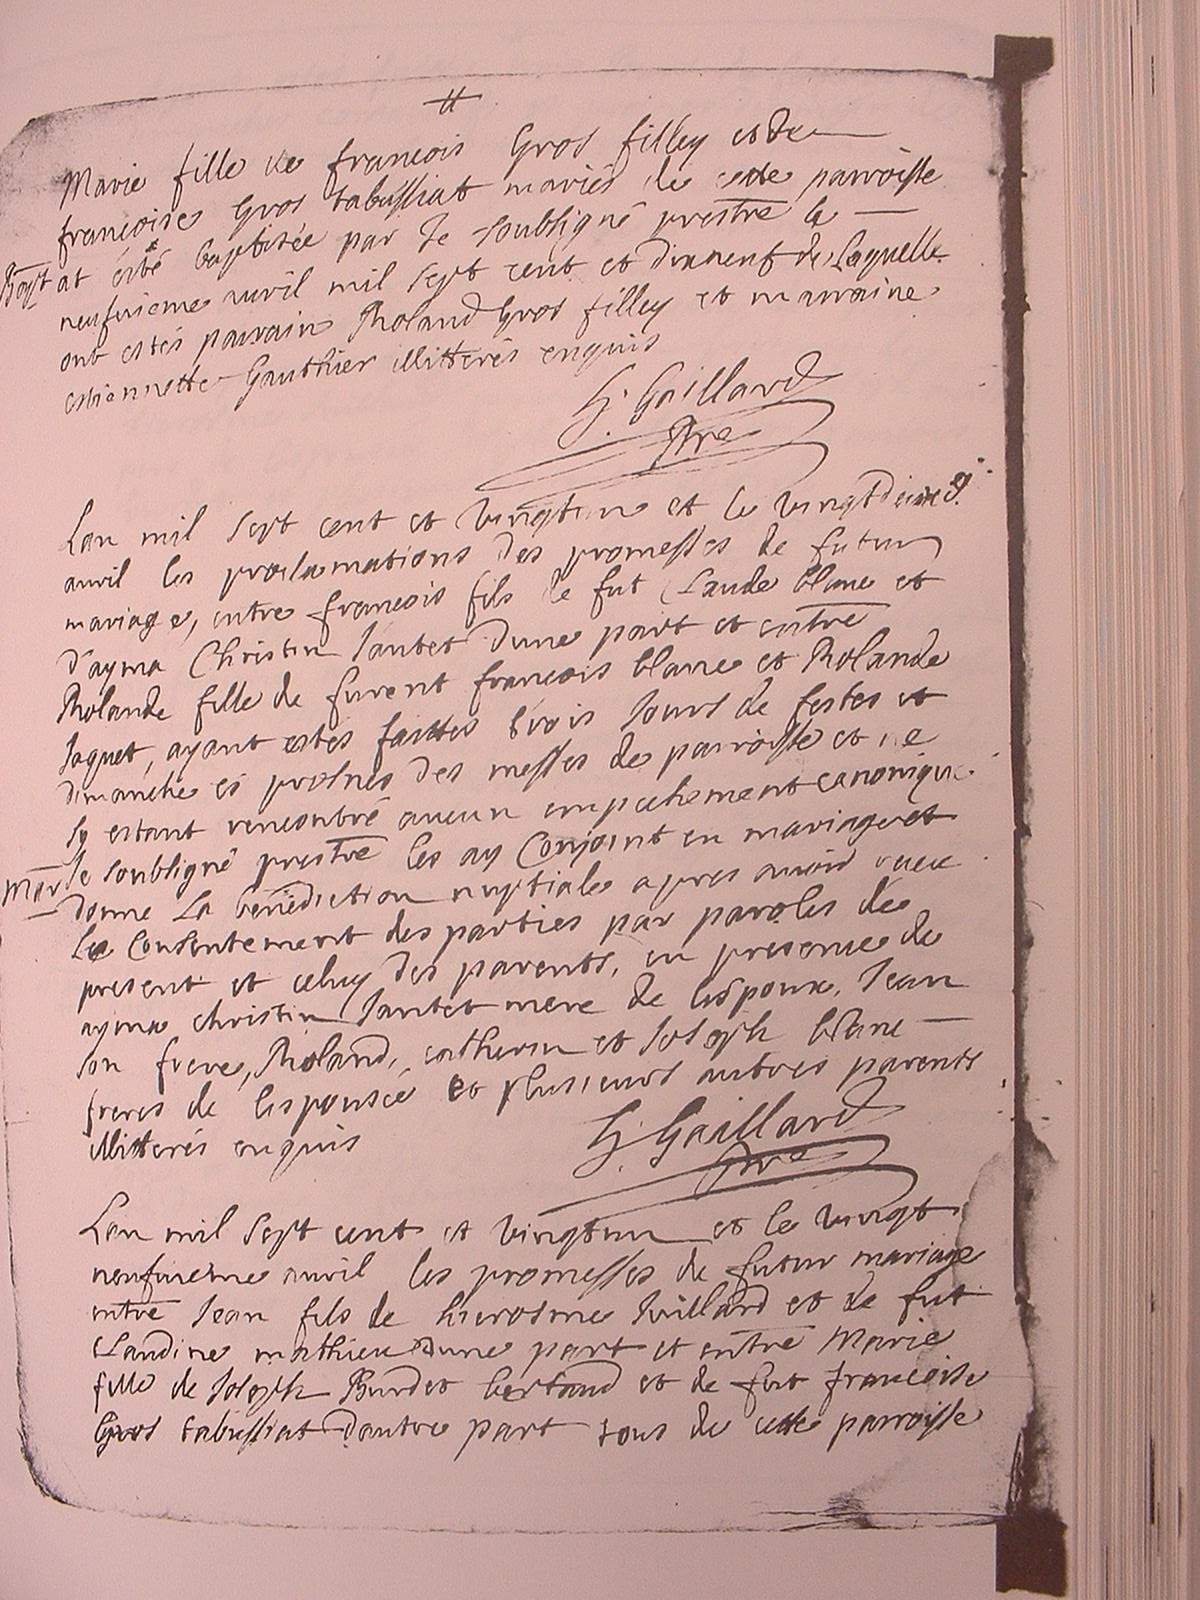 Marie fille de francois Gros filley et de
francoise Gros tabussiat mariés de cette parroisse
Bapt at esté baptisée par Je soubsigné prestre le
neufvieme avril mil sept cent et dixneuf de laquelle
ont estés parrain Roland Gros filley et marraine
estiennette Gauthier illitterés enquis
G. Gaillard
Pre
Lan mil sept cent et vingtun et le vingtdeuxe
avril les proclamations des promesses de futur
mariage, entre francois fils de fut Claude blanc et
d'ayma Christin Jantet dune part et entre
Rolande fille de furent francois blanc et Rolande
Jaquet, ayant estés faittes trois Jours de festes et
dimanche és prosnes des messes de parroisse et ne
sy estant rencontré aucun empechement canonique
Mar Je soubsigné prestre les ay Conjoint en mariage et
donne La benediction nuptiale apres avoir receu
Le Consentement des parties par paroles de
present et celuy des parents, en presence de
ayma christin Jantet mere de lispoux, Jean
son frere, Roland, catherin et Joseph blanc
freres de lispousée et plusieurs autres parents
illitterés enquis
G. Gaillard
pre
Lan mil sept cent et vingtun et le vingt
neufvieme avril les promesses de futur mariage
entre Jean fils de hierosme Juillard et de fut
Claudine mathieu dune part et entre Marie
fille de Joseph Burdet bertand et de fut francoise
Gros tabussiat dautre part tous de cette parroisse